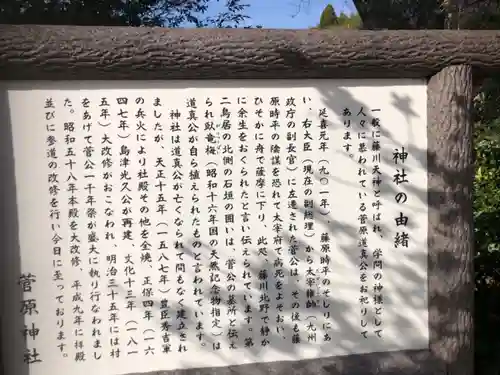 神社の由緒
一般に藤川天神と呼ばれ、学問の神様として
人々に慕われている菅原道真公をお祀りして
あります。
延喜元年（九〇一年）、藤原時平のそしりにあ
い、右大臣（現在の副総理）から太宰権師（九州
政庁の副長官）に左遷された菅公は、その後も藤
原時平の陰謀を恐れて太宰府で病死をよそおい、
ひそかに舟で薩摩に下り、此処、藤川北野で静か
に余生をおくられたと言い伝えられています。第
二鳥居の北側の石垣の囲いは、菅公の墓所と伝え
られ臥竜梅（昭和十六年国の天然記念物指定）は
道真公が自ら植えられたものと言われています。
神社は道真公が亡くなられて間もなく建立され
ましたが、天正十五年（一五八七年）豊臣秀吉軍
の兵火により社殿その他を全焼、正保四年（一六
四七年）島津光久公が再建、文化十三年（一八一
五年）大改修がおこなわれ、明治三十五年には村
をあげて菅公一千年祭が盛大に執り行なわれまし
た。昭和五十八年本殿を大改修、平成九年に拝殿
並びに参道の改修を行い今日に至っております。
菅原神社